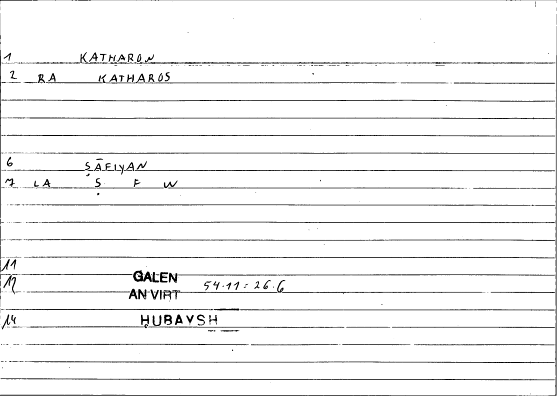 1 KATHARON
2 RA KATHAROS
6 ṢĀFIYAN
7 LA Ṣ F W
11
12 GALEN 54.11 = 26.6
AN VIRT
14 ḤUBAYSH